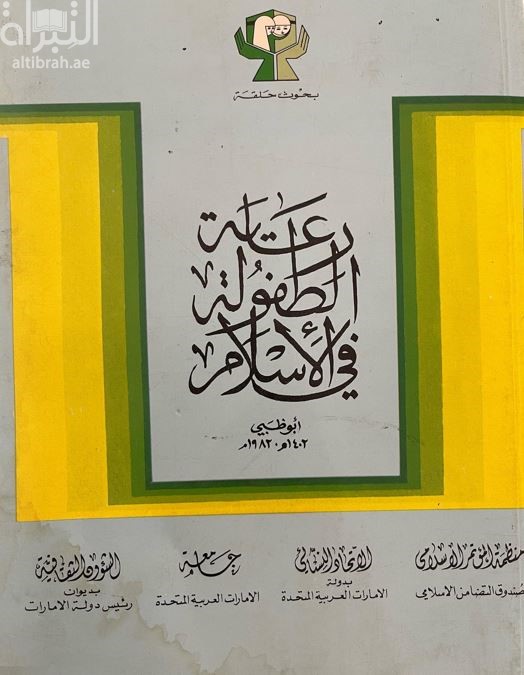 التبراة
altibrah.ae
بحوث حلقة
رعاية
الطفولة
في الإسلام
أبوظبي
١٤٠٢ه‍ - ١٩٨٢م
منظمة المؤتمر الإسلامي
صندوق التضامن الاسلامي
الاتحاد النسائي
بدولة
الامارات العربية المتحدة
جامعة
الامارات العربية المتحدة
الشؤون الثقافية
بديوان
رئيس دولة الامارات